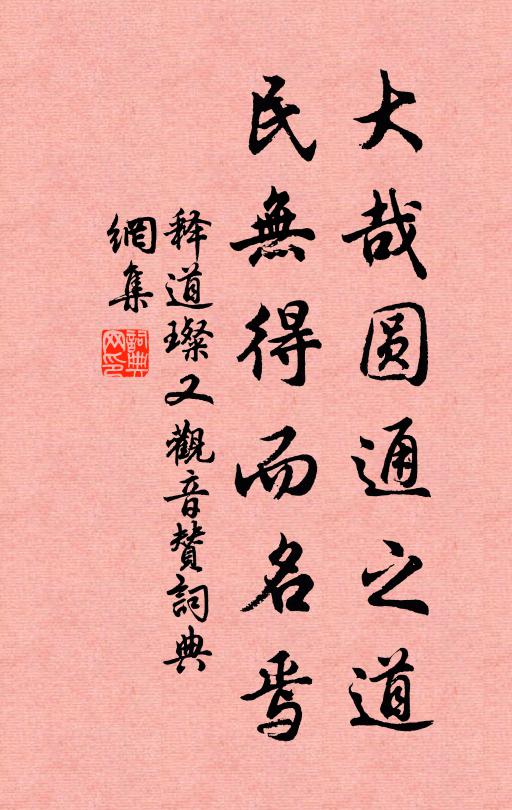 大哉圆通之道
民無得而名焉
释道璨又觀音贊詞典
網集
詞典
网印